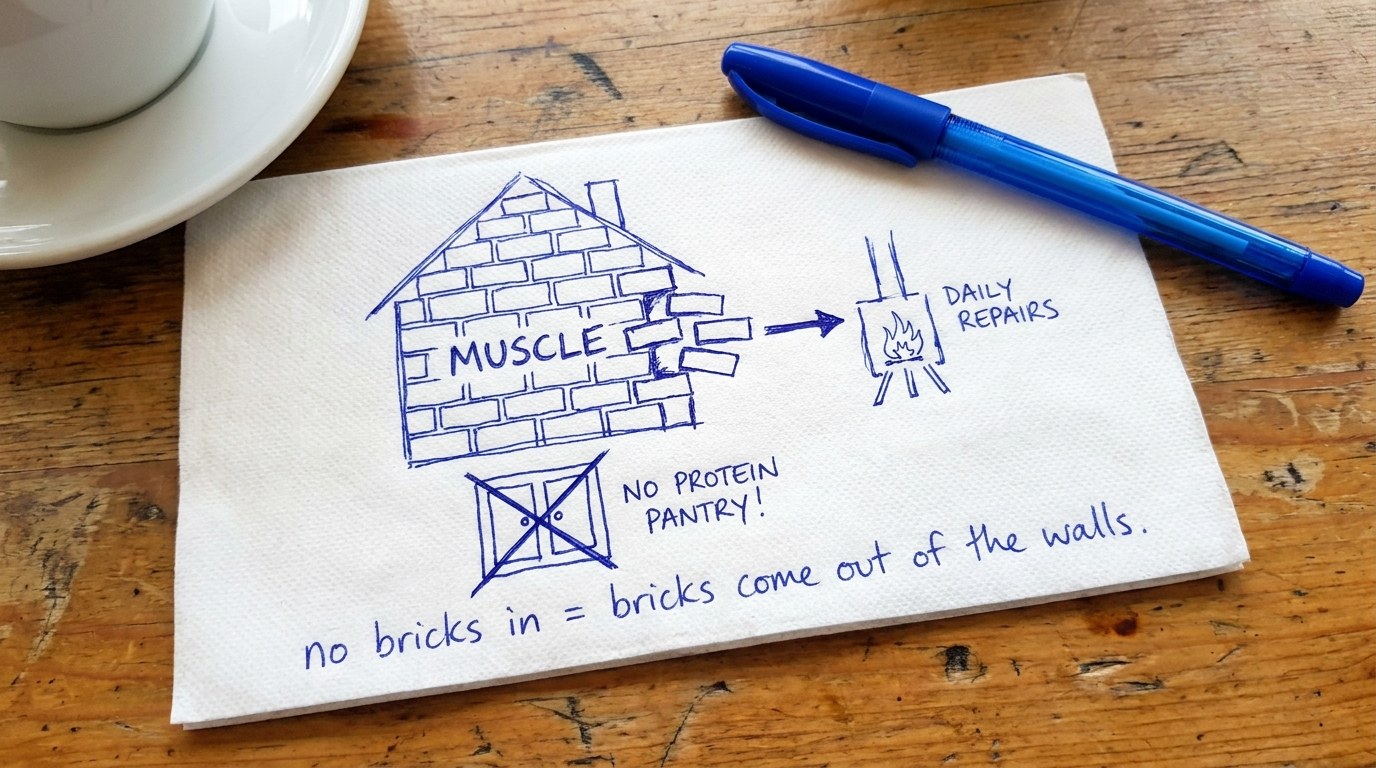 MUSCLE
DAILY
REPAIRS
NO PROTEIN
PANTRY!
no bricks in = bricks come out of the walls.